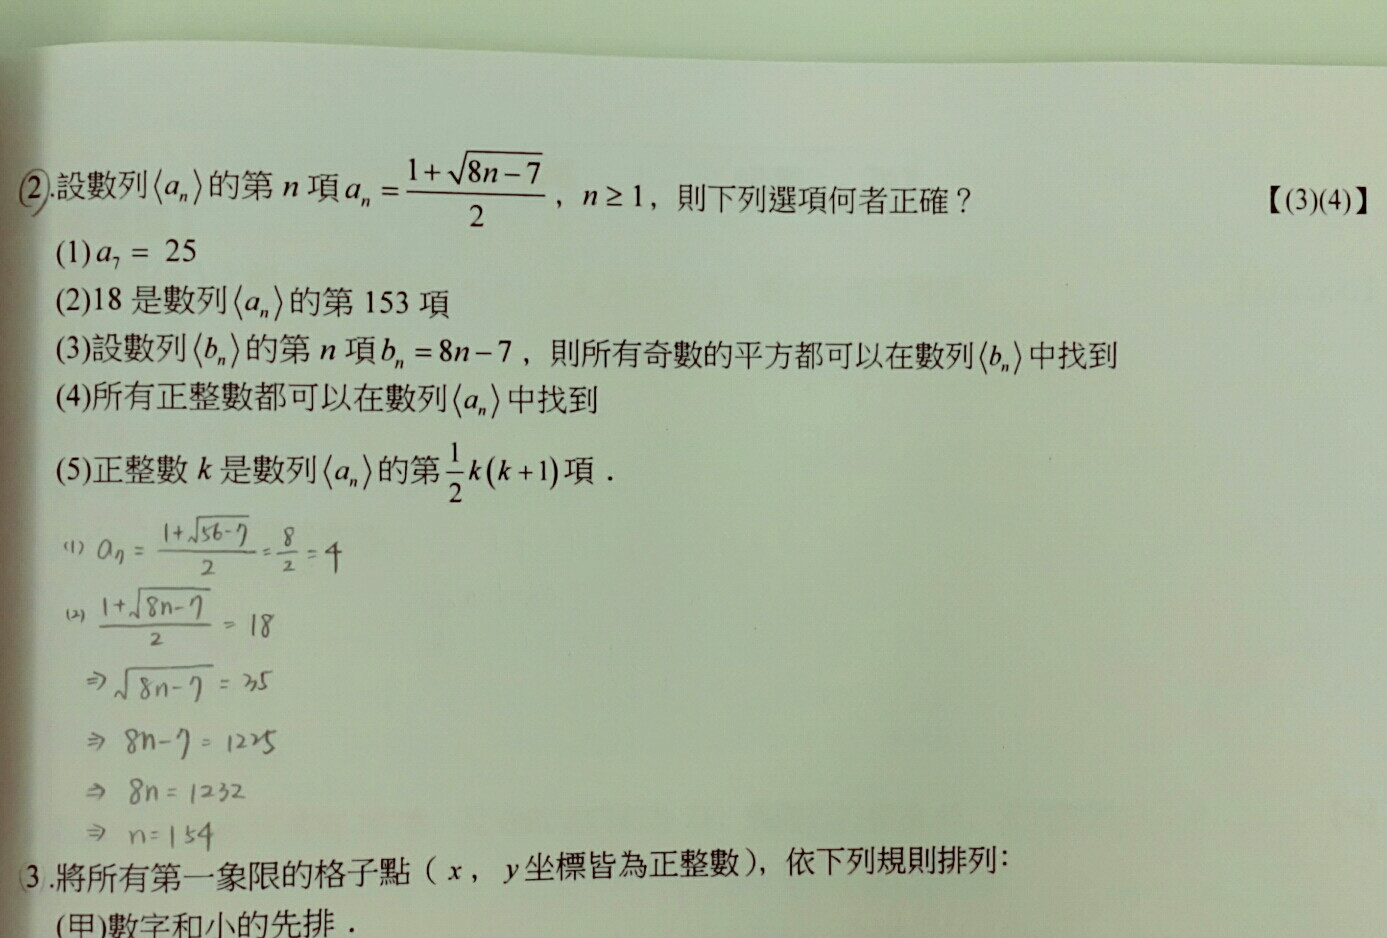 2.設數列⟨aₙ⟩的第 n 項 aₙ = (1+√(8n−7))/2，n ≥ 1，則下列選項何者正確？ 【(3)(4)】
(1) a₇ = 25
(2)18 是數列⟨aₙ⟩的第 153 項
(3)設數列⟨bₙ⟩的第 n 項 bₙ = 8n−7，則所有奇數的平方都可以在數列⟨bₙ⟩中找到
(4)所有正整數都可以在數列⟨aₙ⟩中找到
(5)正整數 k 是數列⟨aₙ⟩的第 1/2 k(k+1) 項．
(1) a₇ = (1+√(56-7))/2 = 8/2 = 4
(2) (1+√(8n-7))/2 = 18
⇒ √(8n-7) = 35
⇒ 8n-7 = 1225
⇒ 8n = 1232
⇒ n = 154
3.將所有第一象限的格子點（x，y 坐標皆為正整數），依下列規則排列：
(甲)數字和小的先排．